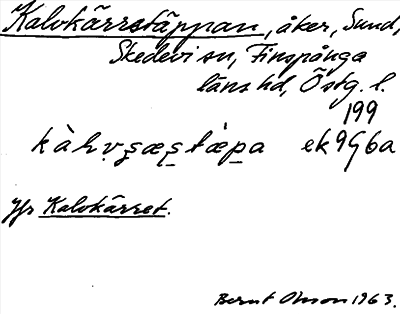 Kalvkärrstäppan, åker, Sund,
Skedevi sn, Finspånga
läns hd, Östg. l.
199
kàlvɟæʂtæ̀pa ek 9 Y6a
Jfr Kalvkärret.
Bernt Olsson 1963.